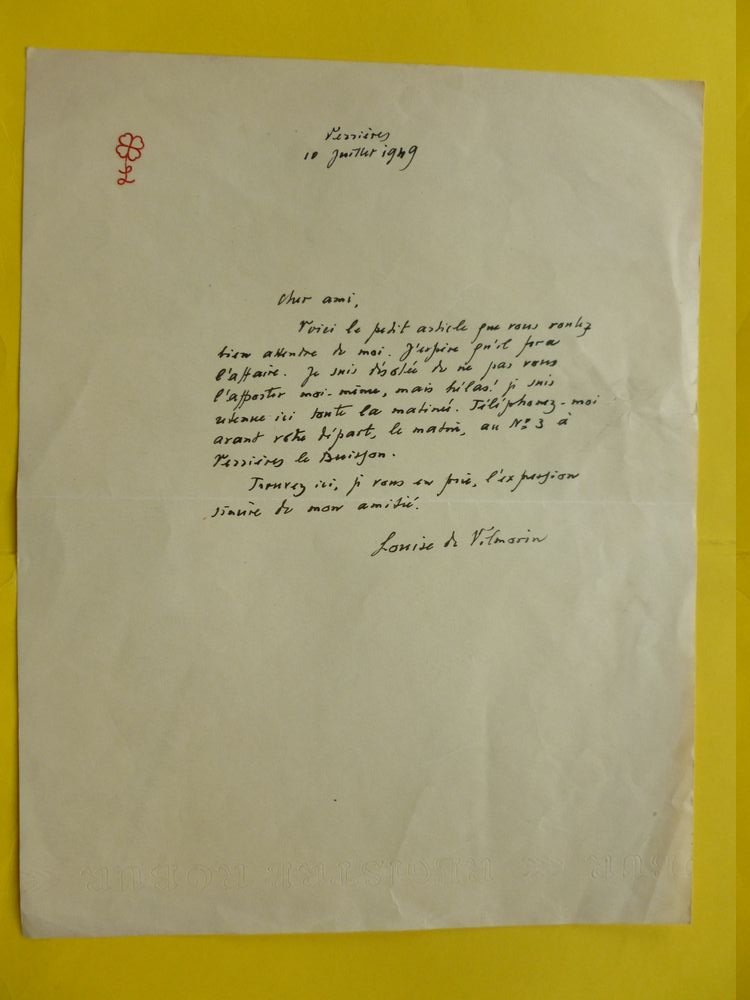 Verrières
10 Juillet 1949
L
Cher ami,
Voici le petit article que vous voulez
bien attendre de moi. J'espère qu'il fera
l'affaire. Je suis désolée de ne pas vous
l'apporter moi-même, mais hélas! je suis
retenue ici toute la matinée. Téléphonez-moi
avant votre départ, le matin, au Nº 3 à
Verrières le Buisson.
Trouvez ici, je vous en prie, l'expression
sincère de mon amitié.
Louise de Vilmorin